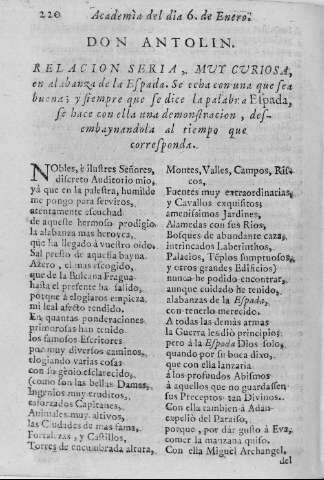 220 Academia del dia 6. de Enero.
DON ANTOLIN.
RELACION SERIA, MUY CURIOSA,
en alabanza de la Espada. Se echa con una que sea
buena; y siempre que se dice la palabra Espada,
se hace con ella una demonstracion, des-
embaynandola al tiempo que
corresponda.
NObles, è ilustres Señores,
discreto Auditorio mio,
yà que en la palestra, humilde
me pongo para serviros,
atentamente escuchad
de aqueste hermoso prodigio
la alabanza mas
que ha llegado à vuestro oído.
Sal presto de aquessa bayna.
Azero, el mas escogido,
que de la Bulcana Fragua
hasta el presente ha salido,
porque à elogiaros empieza
mi leal afecto rendido.
En quantas ponderaciones
primorosas han tenido
los famosos Escritores
por muy diversos caminos,
elogiando varias cosas
con su genio esclarecido,
(como son las bellas Damas,
Ingenios muy eruditos,
esforzados Capitanes,
Animales muy altivos,
las Ciudades de mas fama,
Fortalezas, y Castillos,
Torres de encumbrada altura,
Montes, Valles, Campos, Ris-
cos,
Fuentes muy extraordinarias,
y Cavallos exquisitos;
amenissimos Jardines,
Alamedas con sus Rios,
Bosques de abundante caza,
intrincados Laberinthos,
Palacios, Téplos sumptuosos,
y otros grandes Edificios)
nunca he podido encontrar,
aunque cuidado he tenido,
alabanzas de la Espada,
con tenerlo merecido.
A todas las demàs armas
la Guerra les diò principios;
pero à la Espada Dios solo,
quando por su boca dixo,
que con ella lanzaria
à los profundos Abismos
à aquellos que no guardassen
sus Preceptos tan Divinos.
Con ella tambien à Adàn
expeliò del Paraiso,
porque, por dàr gusto à Eva,
comer la manzana quiso.
Con ella Miguel Archangel,
del